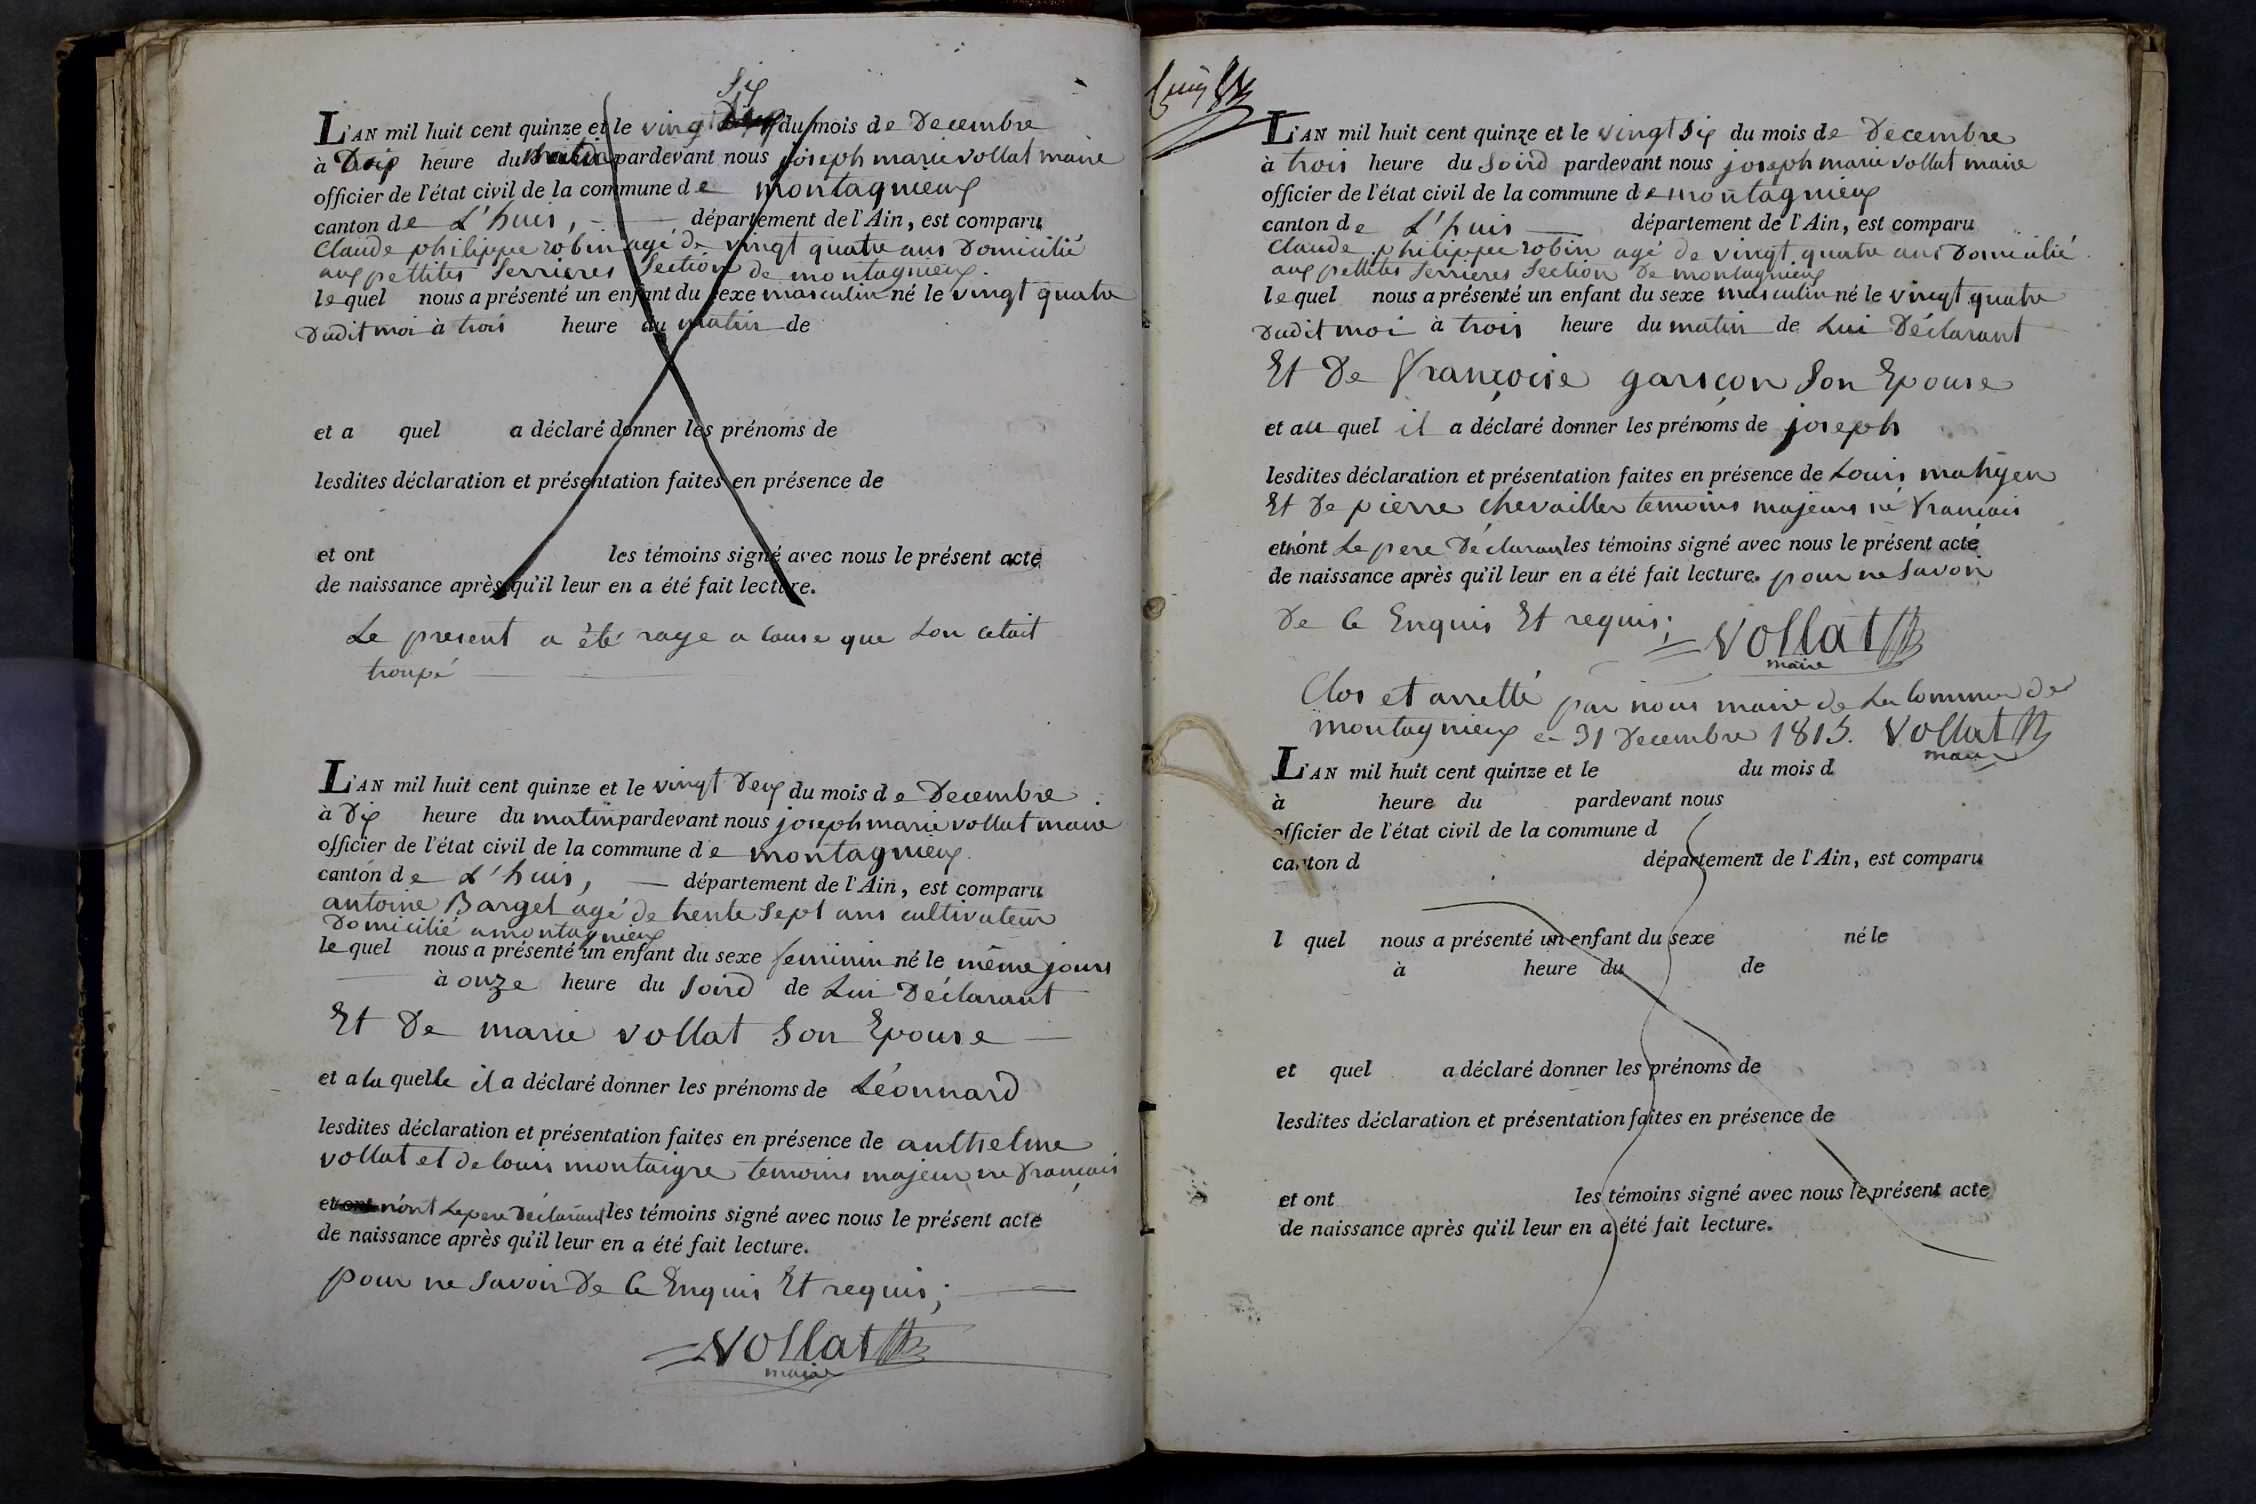 six
L'AN mil huit cent quinze et le vingt du mois de Decembre
à heure du pardevant nous joseph marie vollat maire
officier de l'état civil de la commune de montagnieux
canton de L'huis, département de l'Ain, est comparu
Claude philippe robin agé de vingt quatre ans Domicilié
aux pettites Serrieres Section de montagnieux.
le quel nous a présenté un enfant du sexe masculin né le vingt quatre
dudit moi à trois heure du matin de
et a quel a déclaré donner les prénoms de
lesdites déclaration et présentation faites en présence de
et ont les témoins signé avec nous le présent acte
de naissance après qu'il leur en a été fait lecture.
Le present a été raye a cause que Lon cetait
troupé
L'AN mil huit cent quinze et le vingt Deux du mois de Decembre
à Dix heure du matin pardevant nous joseph marie vollat maire
officier de l'état civil de la commune de montagnieux
canton de L'huis, département de l'Ain, est comparu
antoine Barget agé de trente sept ans cultivateur
Domicilié a montagnieux
le quel nous a présenté un enfant du sexe feminin né le même jours
à onze heure du Soird de Lui Déclarant
Et De marie vollat Son Epouse
et a la quelle il a déclaré donner les prénoms de Léonnard
lesdites déclaration et présentation faites en présence de anthelme
vollat et de louis montaigre temoins majeur ne français
et n'ont Le pere Déclarant les témoins signé avec nous le présent acte
de naissance après qu'il leur en a été fait lecture.
pour ne Savoir De Ce Enquis Et requis;
Vollat
maire
L'AN mil huit cent quinze et le vingt Six du mois de Decembre
à trois heure du Soird pardevant nous joseph marie vollat maire
officier de l'état civil de la commune de montagnieux
canton de L'huis département de l'Ain, est comparu
Claude philippe robin agé de vingt quatre ans Domicilié
aux pettites Serrieres Section De montagnieux
le quel nous a présenté un enfant du sexe masculin né le vingt quatre
dudit moi à trois heure du matin de Lui Déclarant
Et De françoise garsçon Son Epouse
et au quel il a déclaré donner les prénoms de joseph
lesdites déclaration et présentation faites en présence de Louis
Et De pierre Chevaillier temoins majeurs né français
et n'ont Le pere Déclarant les témoins signé avec nous le présent acte
de naissance après qu'il leur en a été fait lecture. pour ne Savoir
De Ce Enquis Et requis;
Vollat
maire
Clos et arretté par nous maire de La Commune de
montagnieux ce 31 Decembre 1815. Vollat
maire
L'AN mil huit cent quinze et le du mois d
à heure du pardevant nous
officier de l'état civil de la commune d
canton d département de l'Ain, est comparu
l quel nous a présenté un enfant du sexe né le
à heure du de
et quel a déclaré donner les prénoms de
lesdites déclaration et présentation faites en présence de
et ont les témoins signé avec nous le présent acte
de naissance après qu'il leur en a été fait lecture.